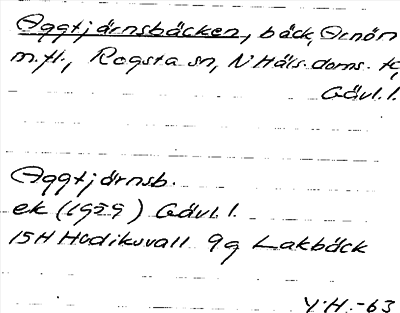 Aggtjärnsbäcken, bäck, Arnön
m.fl., Rogsta sn, N Häls. doms. k,
Gävl. l.
Aggtjärnsb.
ek (1959) Gävl. l.
15H Hudiksvall 9g Lakbäck
Y.H.-63